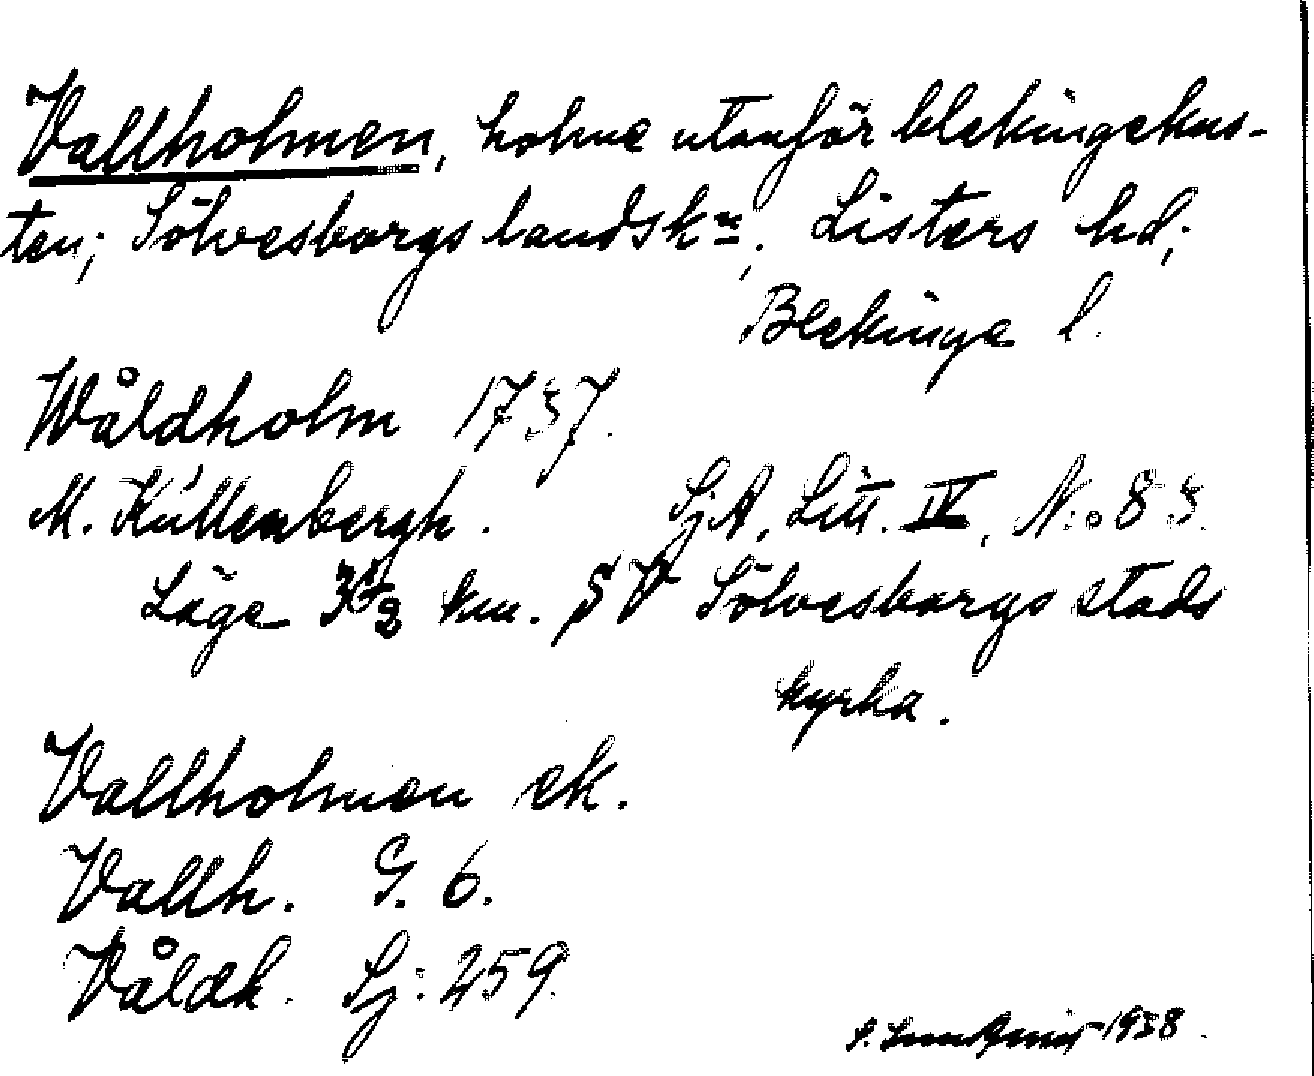 Vallholmen, holme utanför blekingekus-
ten; Sölvesborgs landskn, Listers hd;
Blekinge l.
Wåldholm 1737.
M. Küllenbergh. SjA, Litt. IV, N:o 83.
Läge 3 1/2 km. SV Sölvesborgs stads
kyrka.
Vallholmen ek.
Vallh. G. 6.
Våldh. Sj: 259.
1938.